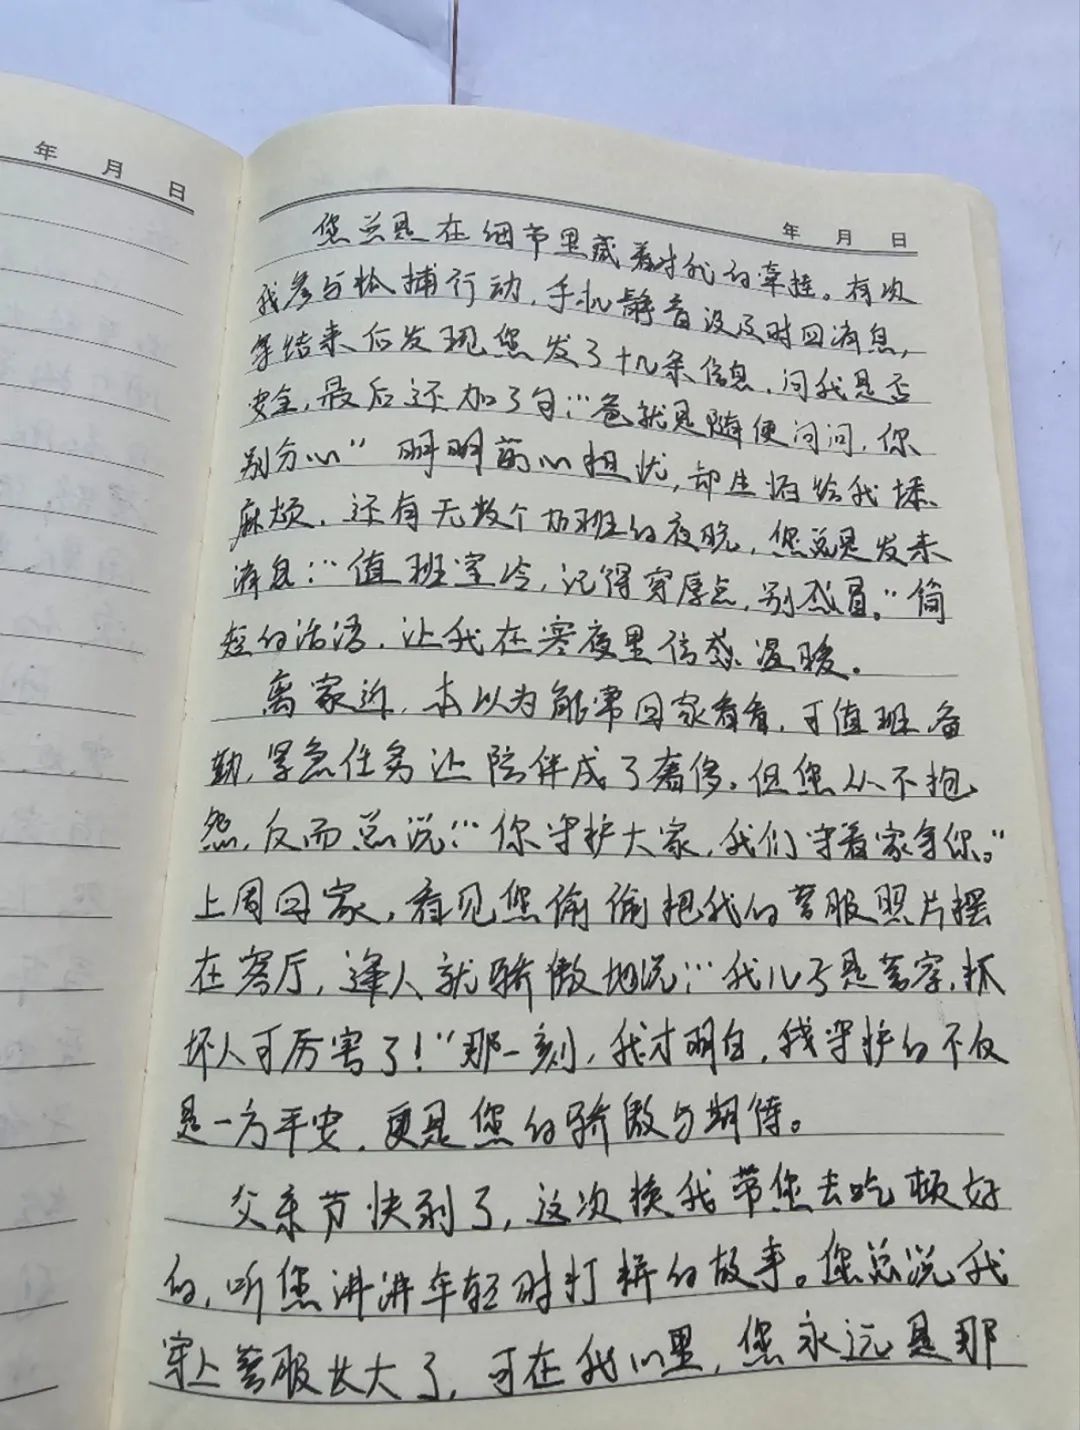 年 月 日
年 月 日
您总是在细节里藏着对我的牵挂。有次
我参与抓捕行动，手机静音没及时回消息，
等结束后发现您发了十几条信息，问我是否
安全，最后还加了句：“爸就是随便问问，你
别分心” 明明满心担忧，却生怕给我添
麻烦。还有无数个加班的夜晚，您总是发来
消息：“值班室冷，记得穿厚点，别感冒。”简
短的话语，让我在寒夜里倍感温暖。
离家近，本以为能常回家看看，可值班、备
勤、紧急任务让陪伴成了奢侈。但您从不抱
怨，反而总说：“你守护大家，我们守着家等你。”
上周回家，看见您偷偷把我的警服照片摆
在客厅，逢人就骄傲地说：“我儿子是警察，抓
坏人可厉害了！”那一刻，我才明白，我守护的不仅
是一方平安，更是您的骄傲与期待。
父亲节快到了，这次换我带您去吃顿好
的，听您讲讲年轻时打拼的故事。您总说我
穿上警服长大了，可在我心里，您永远是那